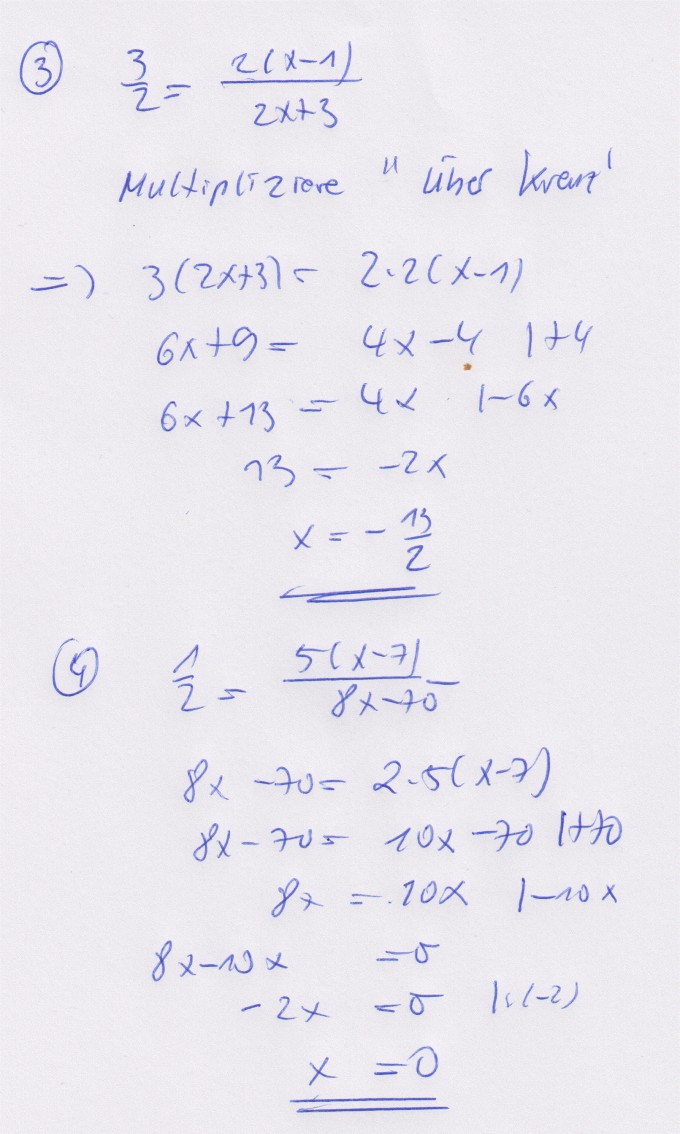 ③ 3/2 = 2(x-1)/2x+3
Multipliziere "über Kreuz'
=> 3(2x+3) = 2·2(x-1)
6x+9 = 4x-4 |+4
6x+13 = 4x |-6x
13 = -2x
x = - 13/2
④ 1/2 = 5(x-7)/8x-70
8x -70 = 2·5(x-7)
8x-70 = 10x -70 |+70
8x = 10x |-10x
8x-10x =0
-2x =0 |:(-2)
x =0